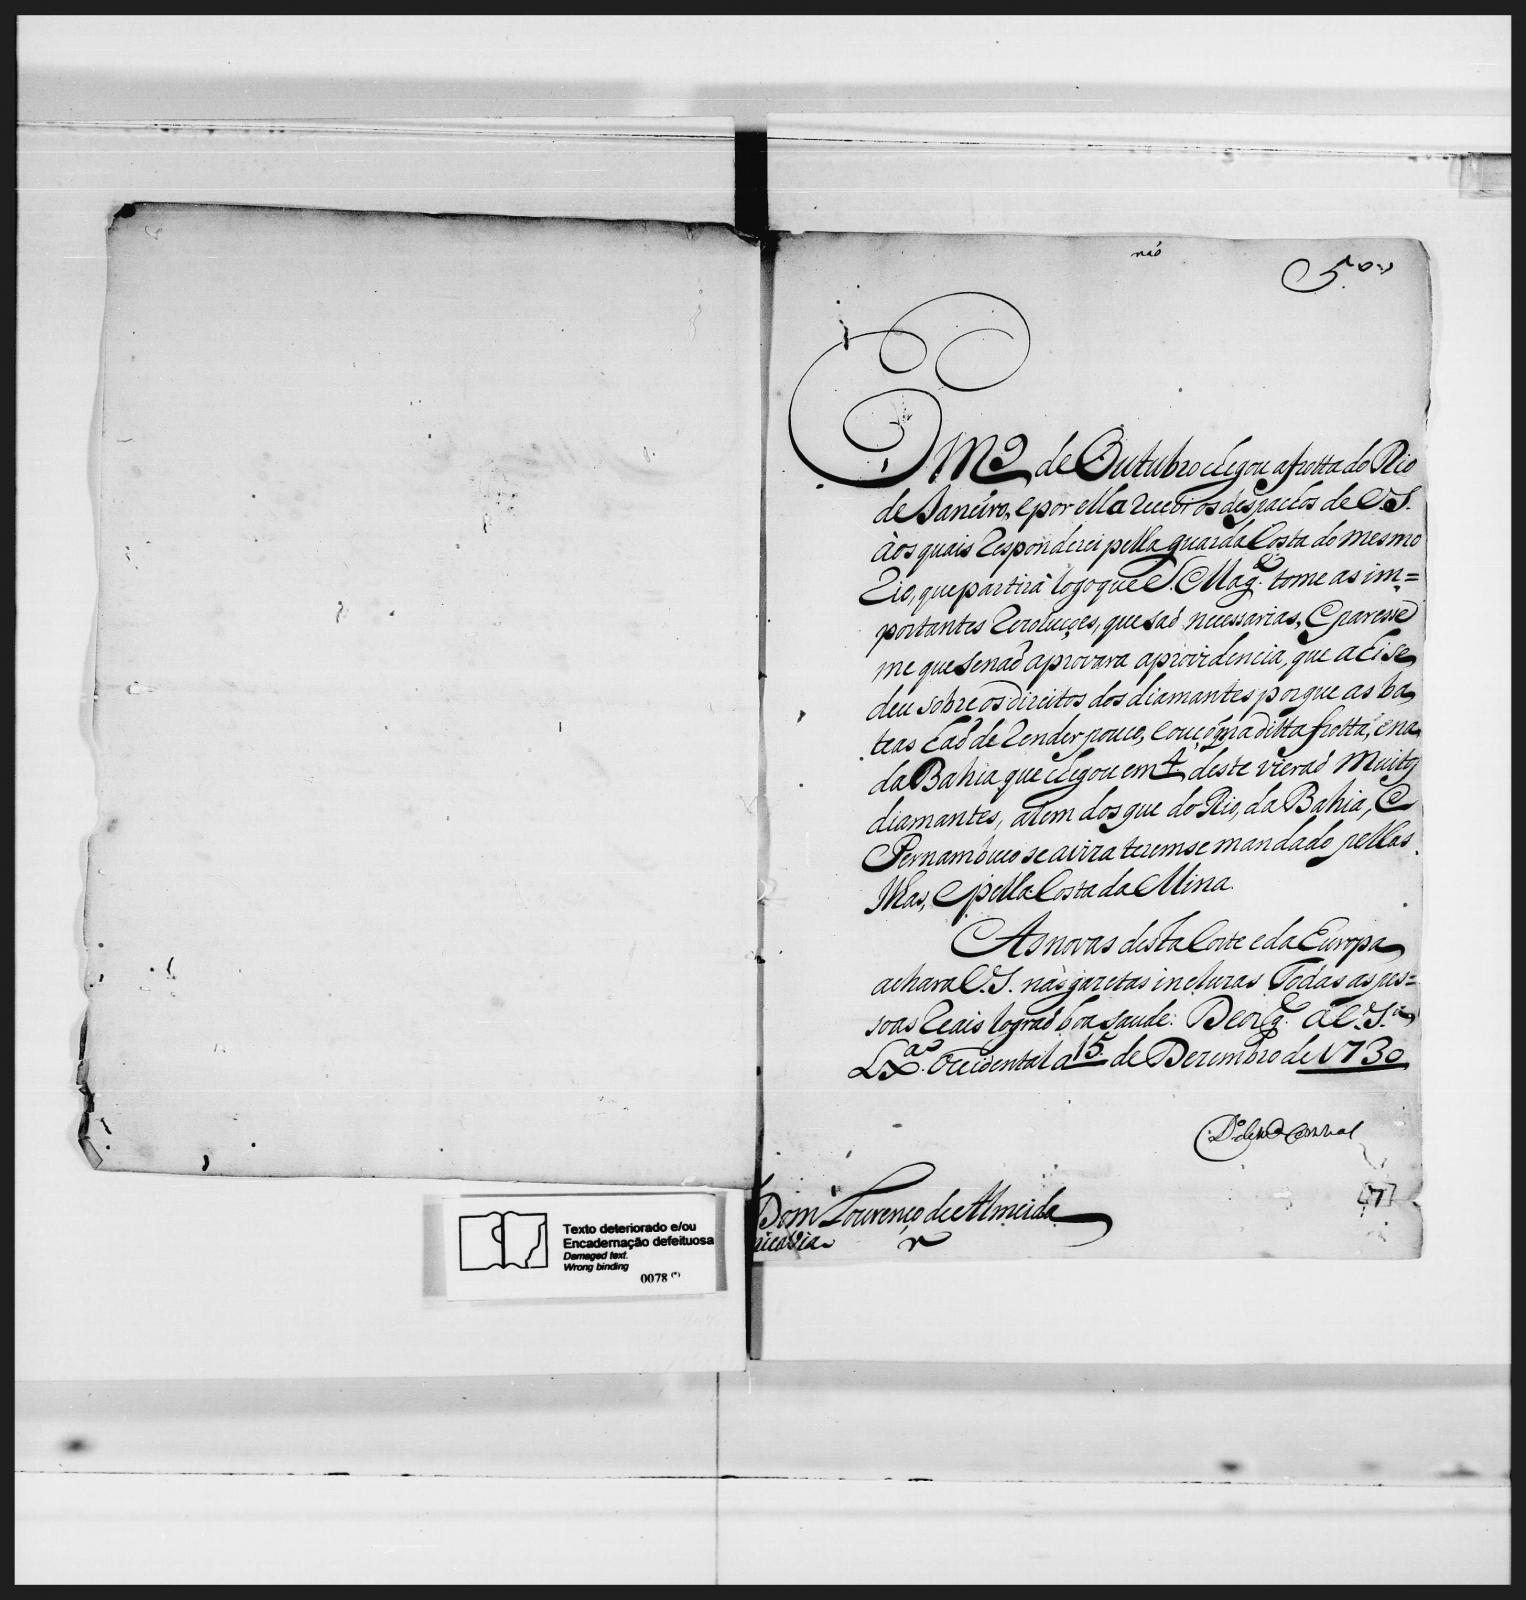 naõ
5.
Em 9 de Outubro chegou a frotta do Rio
de Janeiro, e por ella recebi os despachos de V.S.
àos quais responderei pella guarda Costa do mesmo
Rio, que partirà logo que S. Mag.e tome as im=
portantes rezoluçoes, que saõ necessarias, e paresse
me que senaõ aprovara a providencia, que ahi se
deu sobre os direitos dos diamantes porque as ba
teas haõ de render pouco, e na ditta frotta, e na
da Bahia que chegou em 4. deste vieraõ muitos
diamantes, alem dos que do Rio, da Bahia, e
Pernambuco se aviza teremse mandado pellas
Ilhas, e pella Costa da Mina.
As novas desta Corte e da Europa
achara V.S. nas gazetas incluzas Todas as pes=
soas Reais lograõ boa saude. Deos g.e a V.S.a
Lx.a Occidental a 15. de Dezembro de 1730
Dom Lourenço de Almeida
[7]
Texto deteriorado e/ou
Encadernação defeituosa
Damaged text.
Wrong binding
0078 (*)